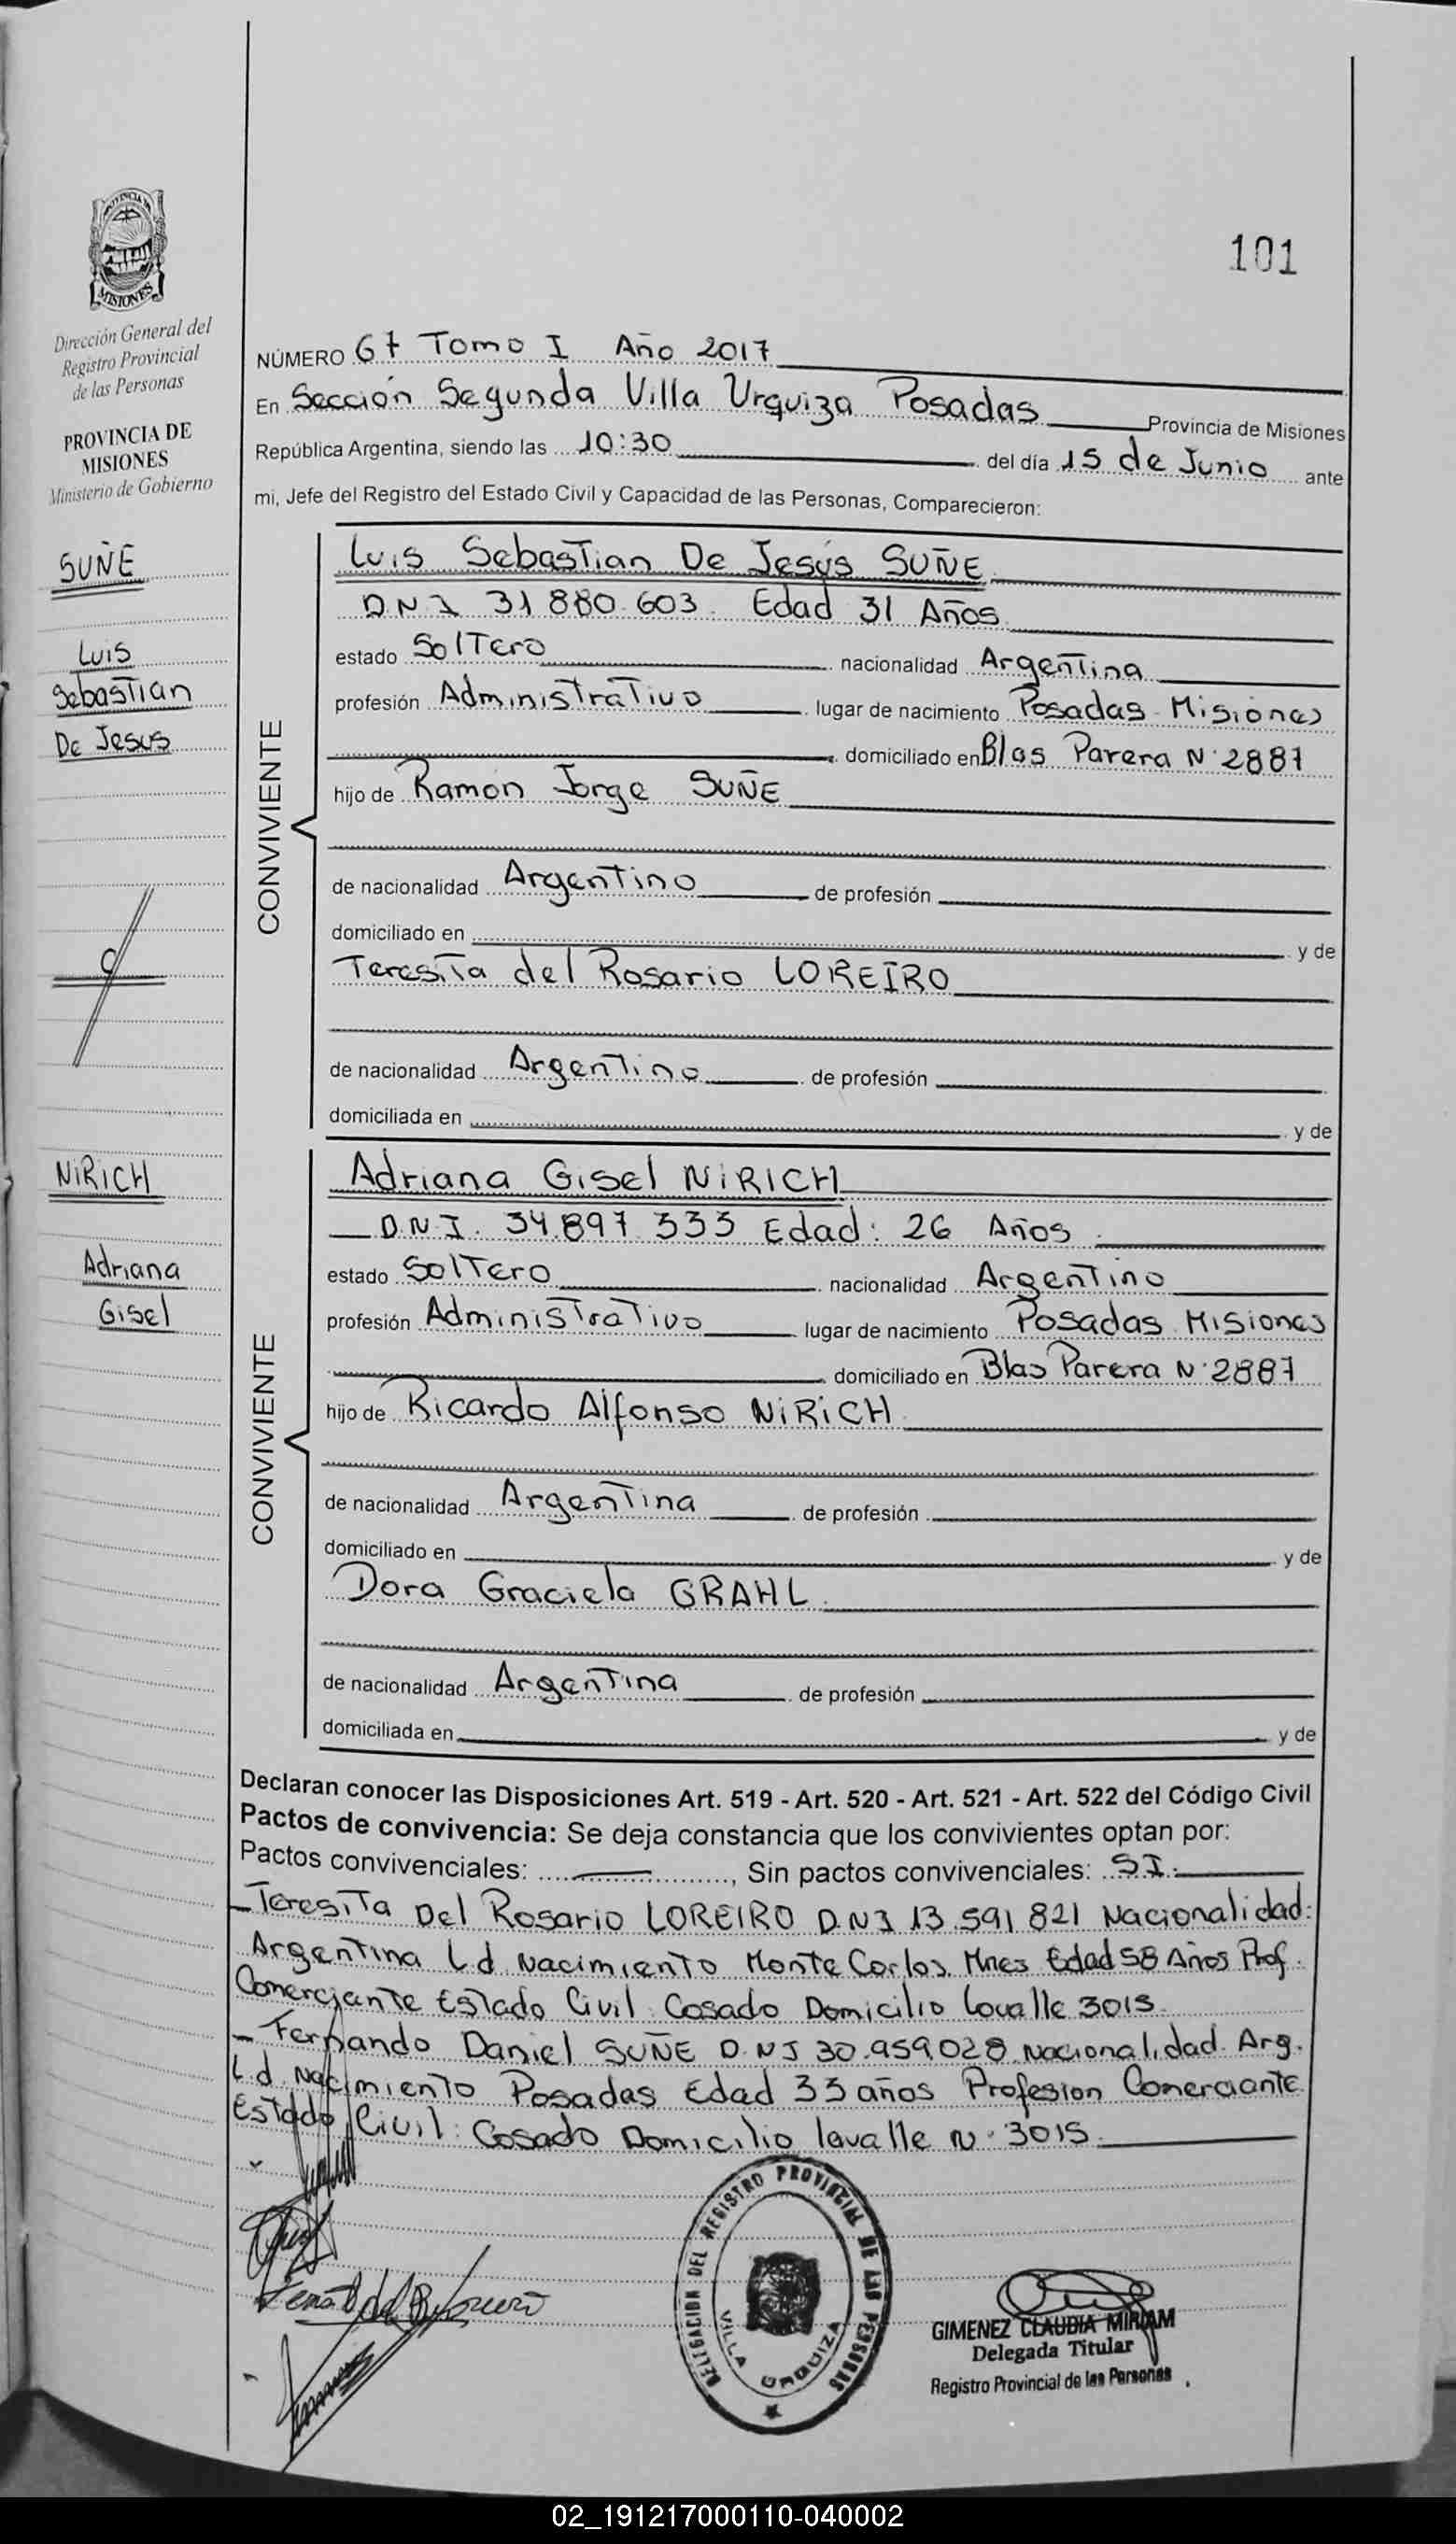 PROVINCIA DE
MISIONES
101
Dirección General del
Registro Provincial
de las Personas
PROVINCIA DE
MISIONES
Ministerio de Gobierno
NÚMERO 67 Tomo I Año 2017
En Sección Segunda Villa Urquiza Posadas Provincia de Misiones
República Argentina, siendo las 10:30 del día 15 de Junio ante
mi, Jefe del Registro del Estado Civil y Capacidad de las Personas, Comparecieron:
SUÑE
Luis
Sebastian
De Jesus
CONVIVIENTE
Luis Sebastian De Jesús SUÑE
D.N.I 31.880.603. Edad 31 Años
estado Soltero nacionalidad Argentina
profesión Administrativo lugar de nacimiento Posadas Misiones
domiciliado en Blas Parera N° 2887
hijo de Ramon Jorge SUÑE
de nacionalidad Argentino de profesión
domiciliado en y de
Teresita del Rosario LOREIRO
de nacionalidad Argentino de profesión
domiciliada en y de
NIRICH
Adriana
Gisel
CONVIVIENTE
Adriana Gisel NIRICH
D.N.I. 34.897.333 Edad: 26 Años
estado Soltero nacionalidad Argentino
profesión Administrativo lugar de nacimiento Posadas Misiones
domiciliado en Blas Parera N° 2887
hijo de Ricardo Alfonso NIRICH
de nacionalidad Argentina de profesión
domiciliado en y de
Dora Graciela GRAHL
de nacionalidad Argentina de profesión
domiciliada en y de
Declaran conocer las Disposiciones Art. 519 - Art. 520 - Art. 521 - Art. 522 del Código Civil
Pactos de convivencia: Se deja constancia que los convivientes optan por:
Pactos convivenciales: , Sin pactos convivenciales: SI.
Teresita Del Rosario LOREIRO D.N.I 13.591.821 Nacionalidad:
Argentina L.d Nacimiento Monte Carlos Mnes Edad 58 Años Prof.
Comerciante Estado Civil: Casado Domicilio Lavalle 3015
Fernando Daniel SUÑE D.N.I 30.959.028 Nacionalidad. Arg.
L.d. Nacimiento Posadas Edad 33 años Profesion Comerciante
Estado Civil: Casado Domicilio lavalle N° 3015
DELEGACION DEL REGISTRO PROVINCIAL DE LAS PERSONAS
VILLA URQUIZA
GIMENEZ CLAUDIA MIRIAM
Delegada Titular
Registro Provincial de las Personas
02_191217000110-040002